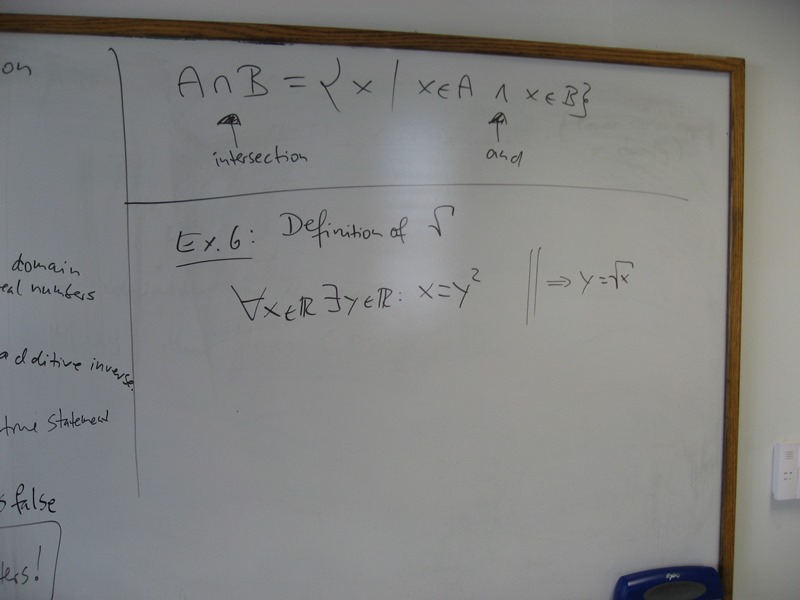 on
domain
eal numbers
additive inverse
true statement
s false
ters!
A∩B = {x | x∈A ∧ x∈B}
intersection and
Ex.6: Definition of √
∀x∈ℝ ∃y∈ℝ: x=y² || ⇒ y=√x
expo